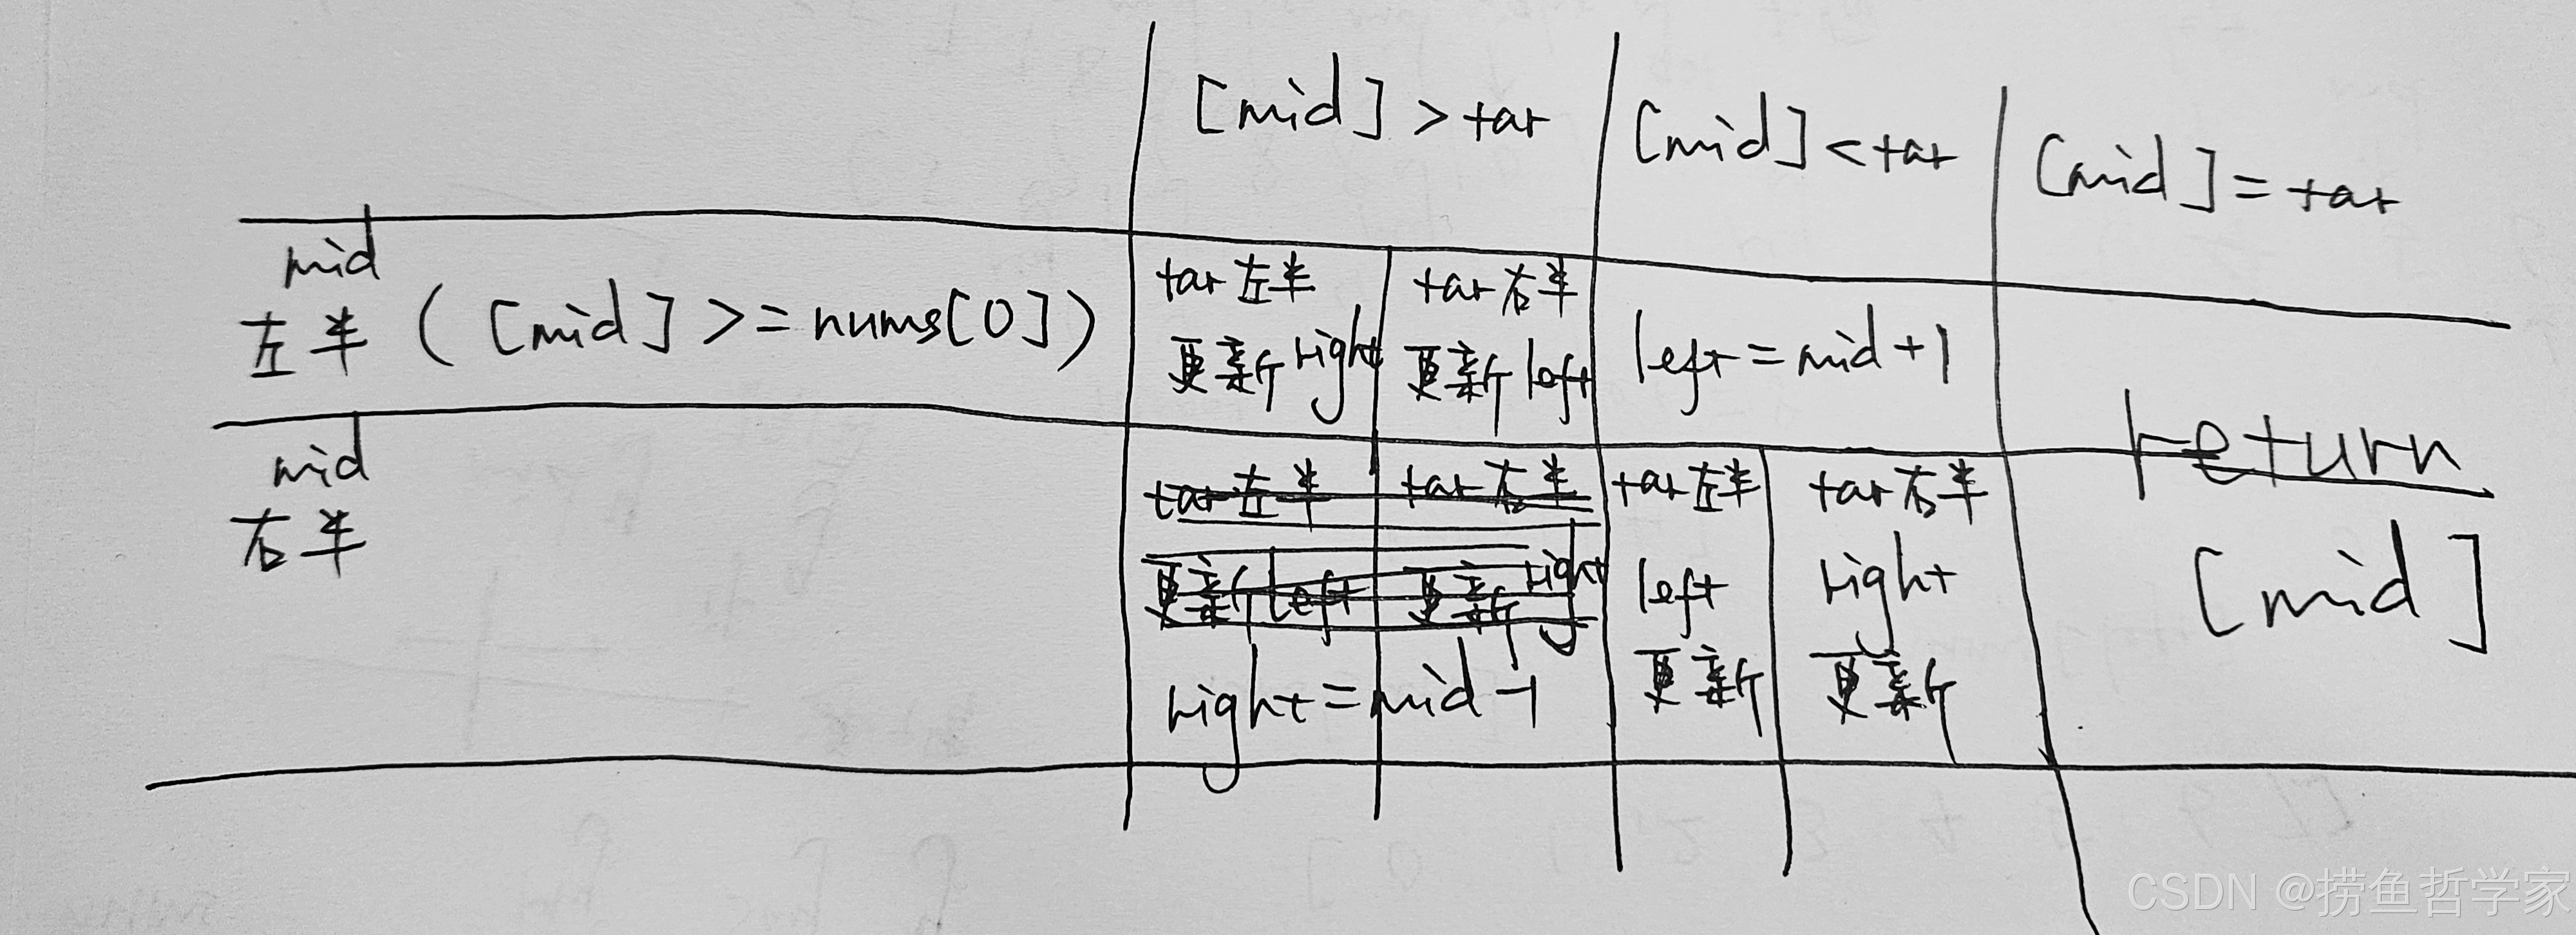 [mid] > tar
[mid] < tar
[mid] = tar
mid
左半 ( [mid] >= nums[0] )
tar左半
更新right
tar右半
更新left
left = mid + 1
return
[mid]
mid
右半
tar左半
更新left
tar右半
更新right
right = mid - 1
tar左半
left
更新
tar右半
right
更新
CSDN @捞鱼哲学家